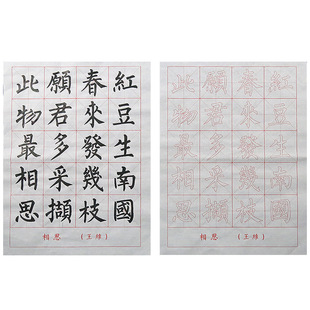 紅豆生南國
春來發幾枝
願君多采擷
此物最相思
相思 (王維)
紅豆生南國
春來發幾枝
願君多采擷
此物最相思
相思 (王維)